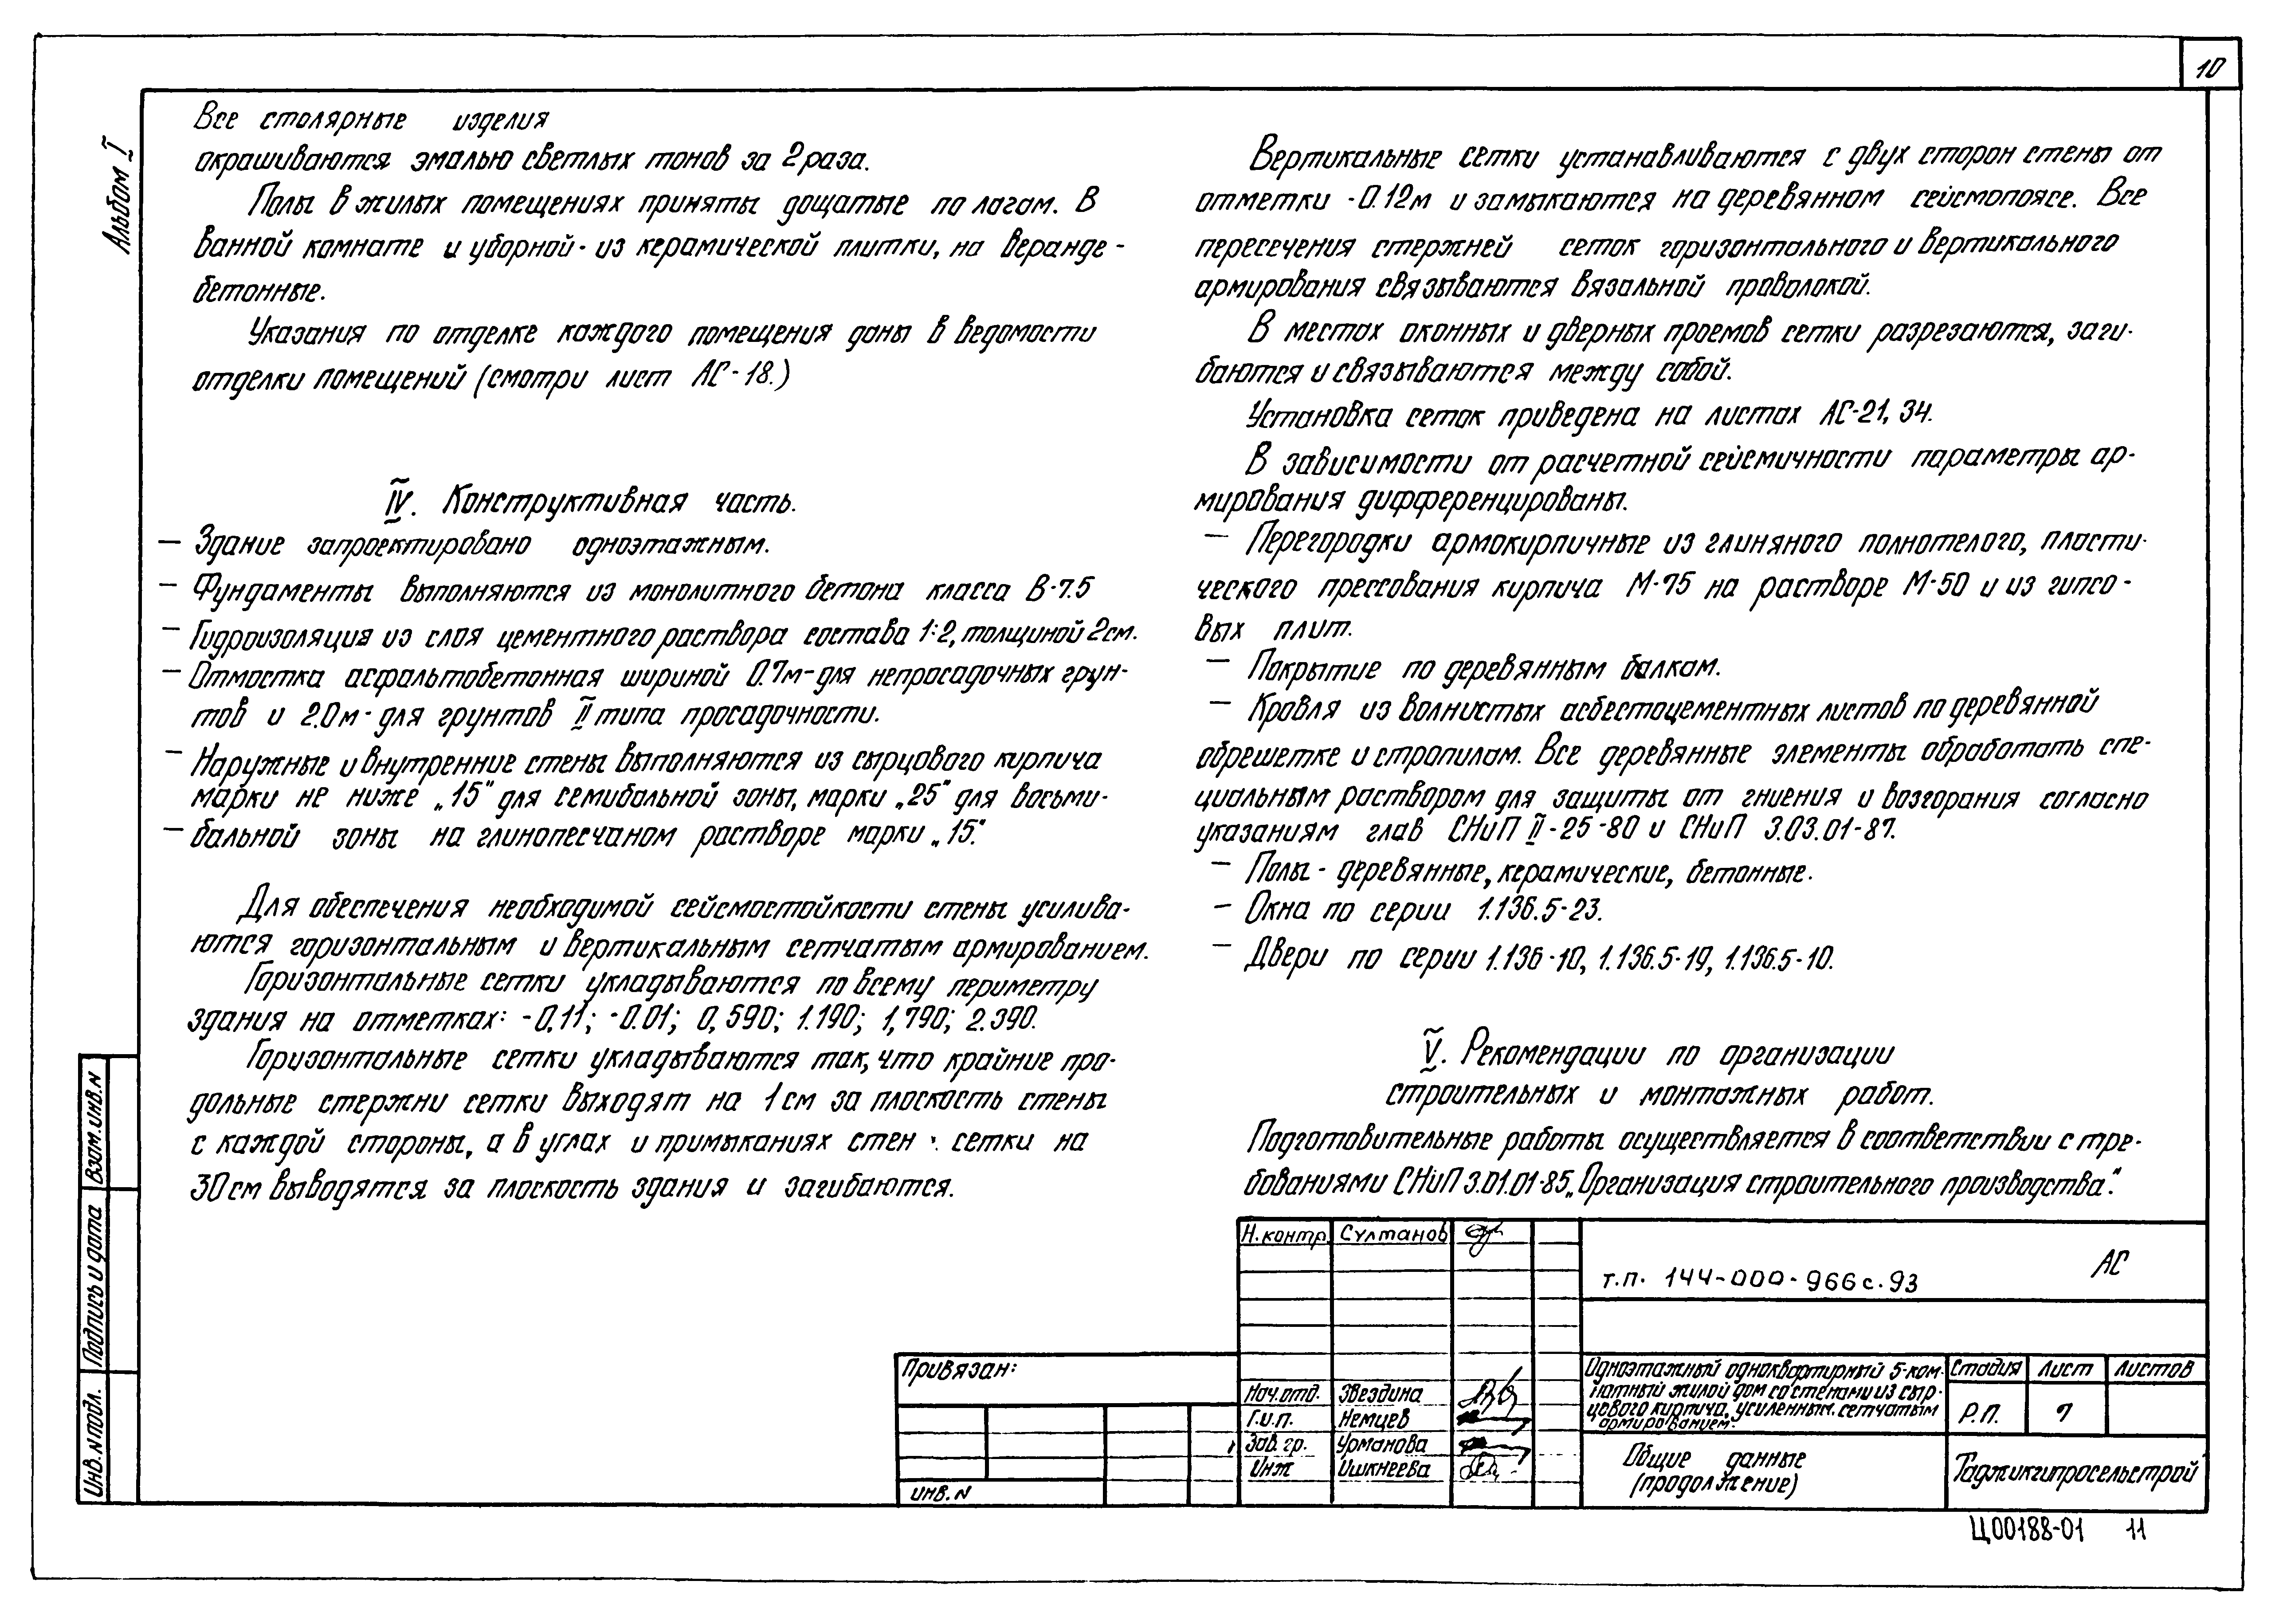 10
Альбом I
Все столярные изделия
окрашиваются эмалью светлых тонов за 2 раза.
Полы в жилых помещениях приняты дощатые по лагам. В
ванной комнате и уборной - из керамической плитки, на веранде -
бетонные.
Указания по отделке каждого помещения даны в ведомости
отделки помещений (смотри лист АС-18.)
IV. Конструктивная часть.
— Здание запроектировано одноэтажным.
— Фундаменты выполняются из монолитного бетона класса В-7.5
— Гидроизоляция из слоя цементного раствора состава 1:2, толщиной 2см.
— Отмостка асфальтобетонная шириной 0.7м - для непросадочных грун-
тов и 2.0м - для грунтов II типа просадочности.
— Наружные и внутренние стены выполняются из сырцового кирпича
марки не ниже „15" для семибальной зоны, марки „25" для восьми-
— бальной зоны на глинопесчаном растворе марки „15".
Для обеспечения необходимой сейсмостойкости стены усилива-
ются горизонтальным и вертикальным сетчатым армированием.
Горизонтальные сетки укладываются по всему периметру
здания на отметках: -0,11; -0.01; 0,590; 1.190; 1,790; 2.390.
Горизонтальные сетки укладываются так, что крайние про-
дольные стержни сетки выходят на 1 см за плоскость стены
с каждой стороны, а в углах и примыканиях стен сетки на
30 см выводятся за плоскость здания и загибаются.
Вертикальные сетки устанавливаются с двух сторон стены от
отметки -0.12м и замыкаются на деревянном сейсмопоясе. Все
пересечения стержней сеток горизонтального и вертикального
армирования связываются вязальной проволокой.
В местах оконных и дверных проемов сетки разрезаются, заги-
баются и связываются между собой.
Установка сеток приведена на листах АС-21, 34.
В зависимости от расчетной сейсмичности параметры ар-
мирования дифференцированы.
— Перегородки армокирпичные из глиняного полнотелого, пласти-
ческого прессования кирпича М-75 на растворе М-50 и из гипсо-
вых плит.
— Покрытие по деревянным балкам.
— Кровля из волнистых асбестоцементных листов по деревянной
обрешетке и стропилам. Все деревянные элементы обработать спе-
циальным раствором для защиты от гниения и возгорания согласно
указаниям глав СНиП II-25-80 и СНиП 3.03.01-87.
— Полы - деревянные, керамические, бетонные.
— Окна по серии 1.136.5-23.
— Двери по серии 1.136-10, 1.136.5-19, 1.136.5-10.
V. Рекомендации по организации
строительных и монтажных работ.
Подготовительные работы осуществляется в соответствии с тре-
бованиями СНиП 3.01.01-85 „Организация строительного производства".
Инв. N подл. Подпись и дата Взам. инв. N
Привязан:
инв. N
Н. контр. Султанов
Нач. отд. Звездина
Г.и.п. Немцев
Зав. гр. Урманова
Инж Ишкнеева
т.п. 144-000-966с.93 АС
Одноэтажный одноквартирный 5-ком-
натный жилой дом со стенами из сыр-
цового кирпича, усиленным сетчатым
армированием.
Стадия Лист Листов
Р.П. 7
Общие данные
(продолжение)
Таджикгипросельстрой
Ц00188-01 11